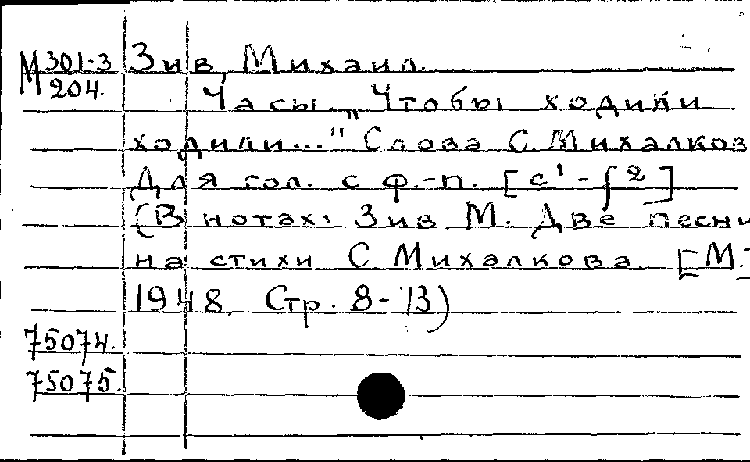 М 301-3 Зив, Михаил.
204.
Часы „Чтобы ходили
ходили..." Слова С. Михалков
Для гол. с ф.-п. [c¹-f²]
(В нотах: Зив М. Две песни
на стихи С. Михалкова [М.]
1948. Стр. 8-13)
75074.
75075.